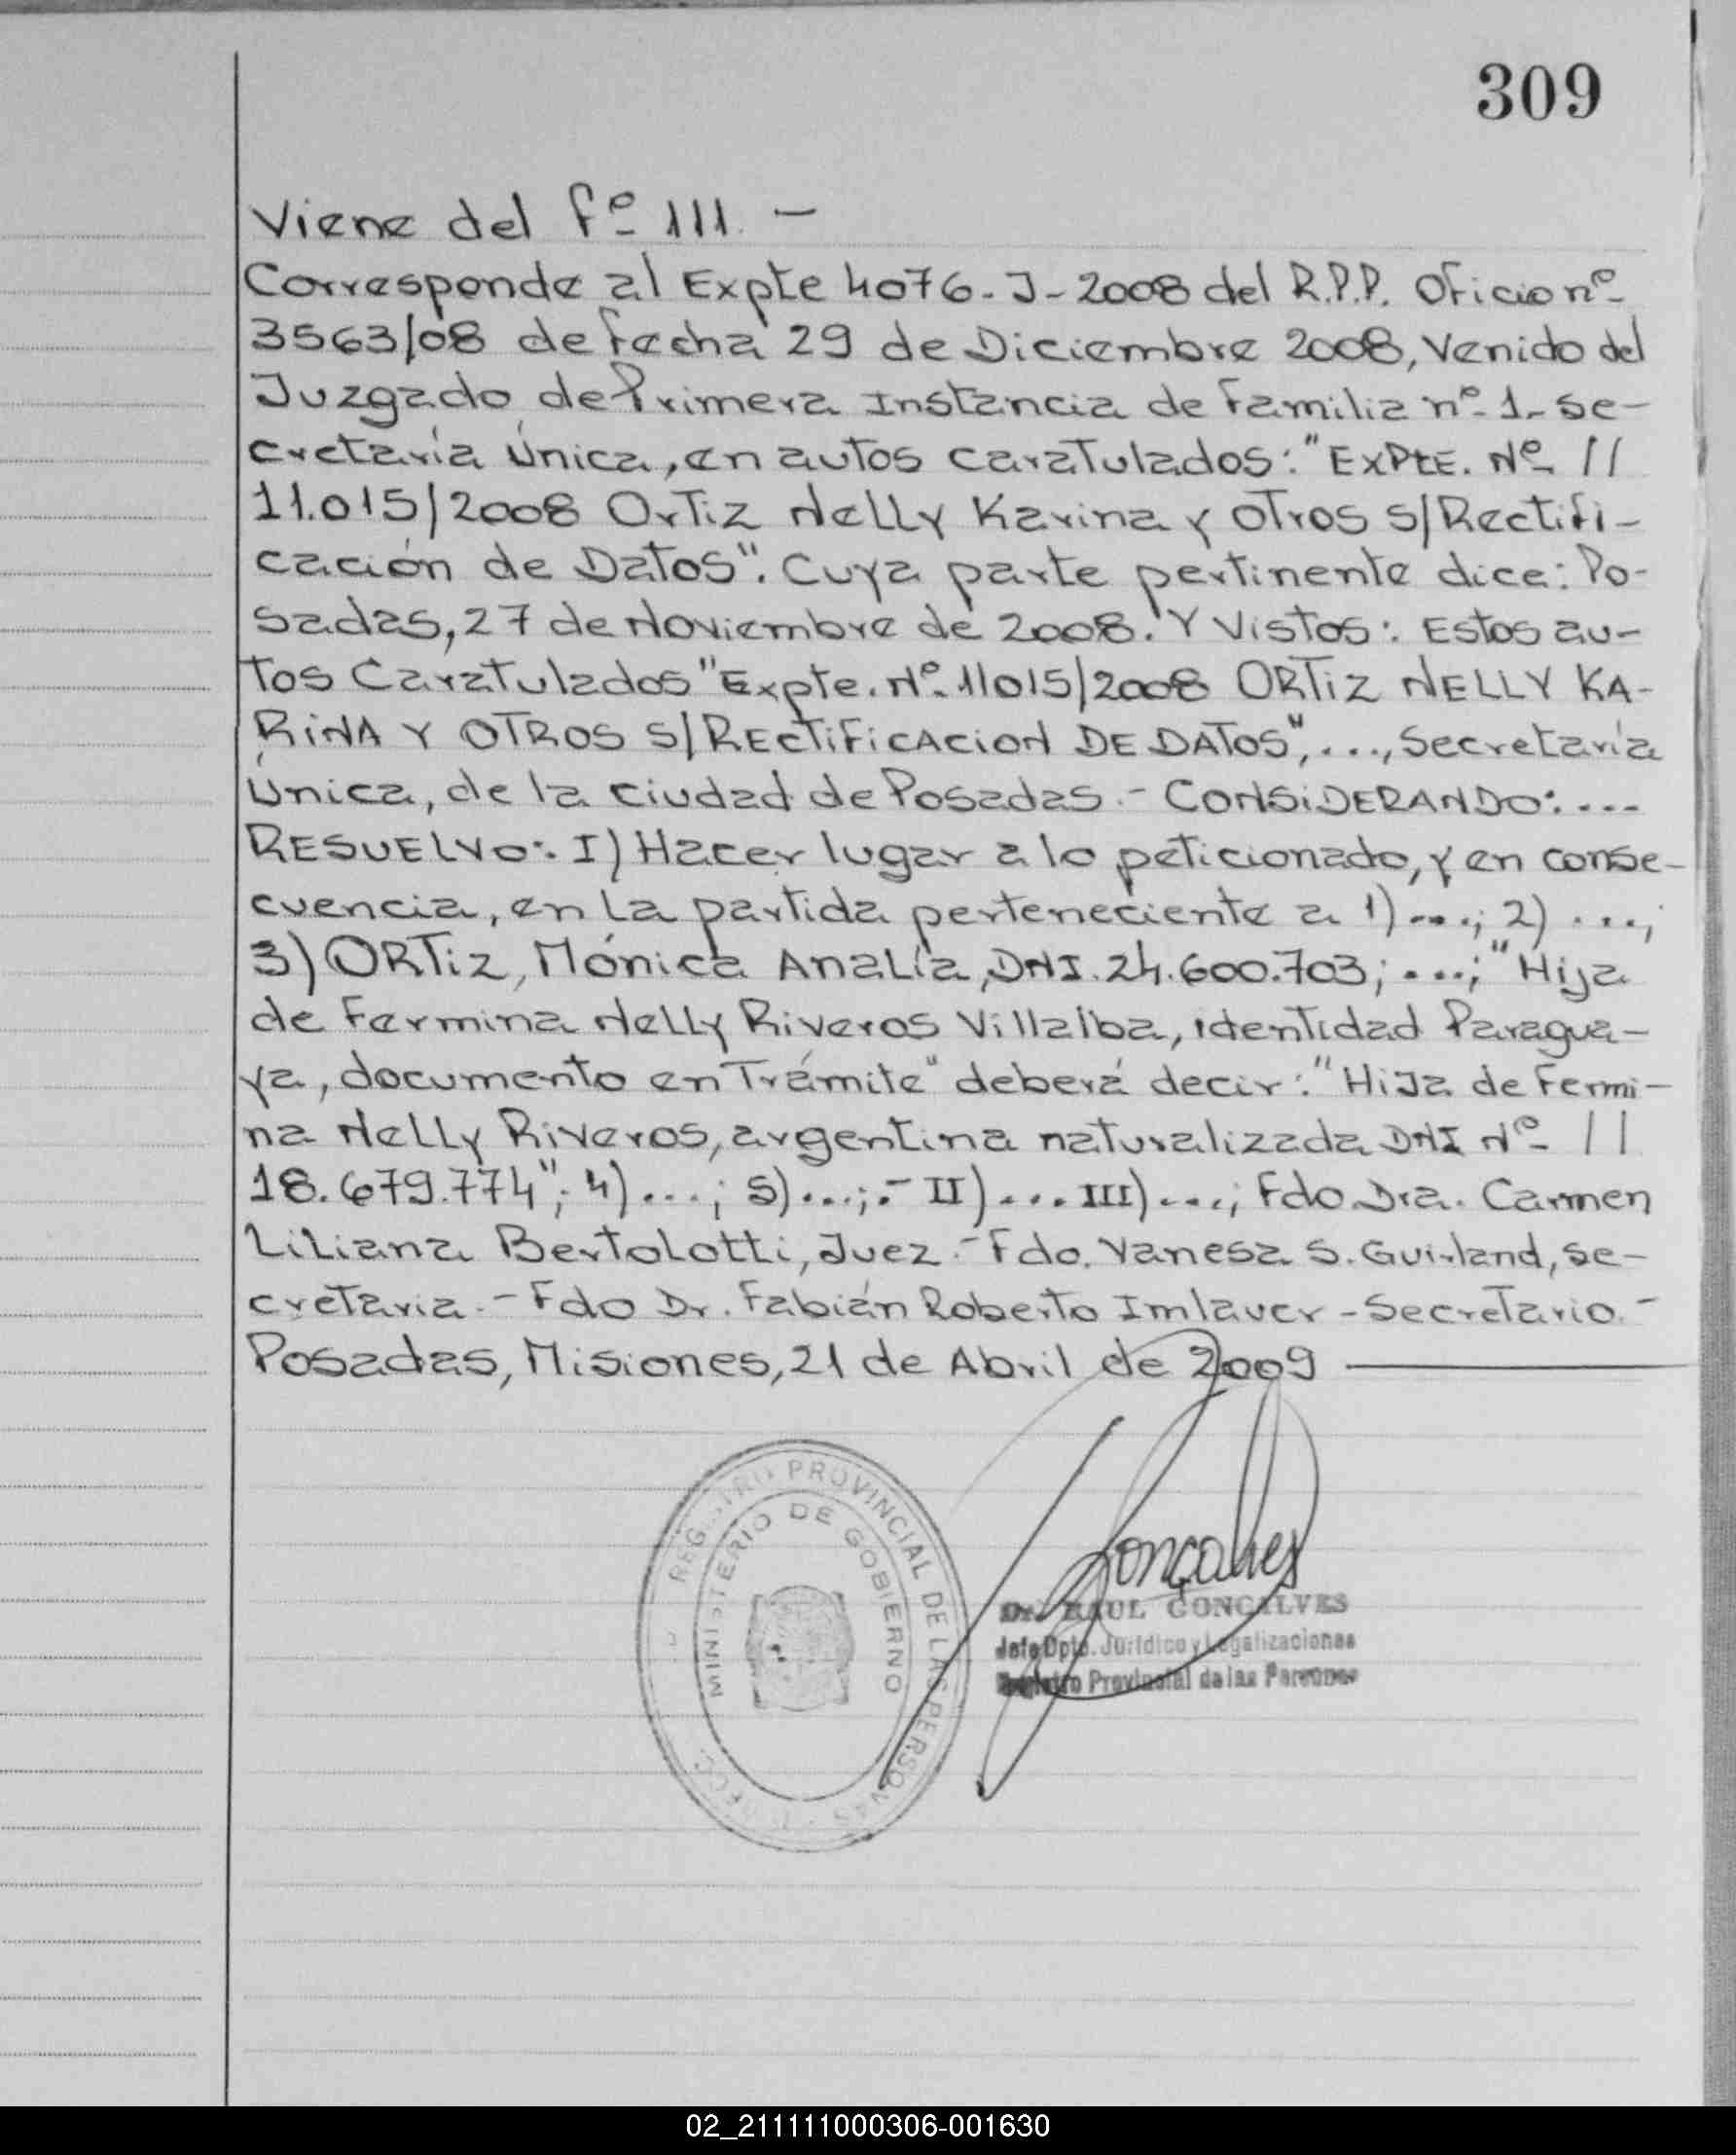 309
Viene del fº 111. —
Corresponde al Expte 4076-J-2008 del R.P.P. Oficio nº
3563/08 de fecha 29 de Diciembre 2008, Venido del
Juzgado de Primera Instancia de Familia nº 1- Se-
cretaría Única, en autos caratulados: "EXPTE. Nº //
11.015/2008 Ortiz Nelly Karina y otros s/Rectifi-
cación de Datos". Cuya parte pertinente dice: Po-
sadas, 27 de Noviembre de 2008. Y Vistos: Estos au-
tos Caratulados "Expte. Nº 11015/2008 ORTIZ NELLY KA-
RINA Y OTROS S/RECTIFICACION DE DATOS", ..., Secretaría
Única, de la ciudad de Posadas.- CONSIDERANDO: ...
RESUELVO: I) Hacer lugar a lo peticionado, y en conse-
cuencia, en la partida perteneciente a 1) ...; 2) ...;
3) ORTIZ, Mónica Analía, DNI. 24.600.703; ...; "Hija
de Fermina Nelly Riveros Villalba, identidad Paragua-
ya, documento en Trámite" deberá decir: "Hija de Fermi-
na Nelly Riveros, argentina naturalizada DNI Nº //
18.679.774"; 4) ...; 5) ...;.- II) ... III) ...; Fdo Dra. Carmen
Liliana Bertolotti, Juez.- Fdo. Vanesa S. Guirland, Se-
cretaria.- Fdo Dr. Fabián Roberto Imlauer - Secretario.-
Posadas, Misiones, 21 de Abril de 2009 ———
REGISTRO PROVINCIAL DE LAS PERSONAS
MINISTERIO DE GOBIERNO
Gonçalves
Dr. RAUL GONCALVES
Jefe Dpto. Jurídico y Legalizaciones
Registro Provincial de las Personas
02_211111000306-001630